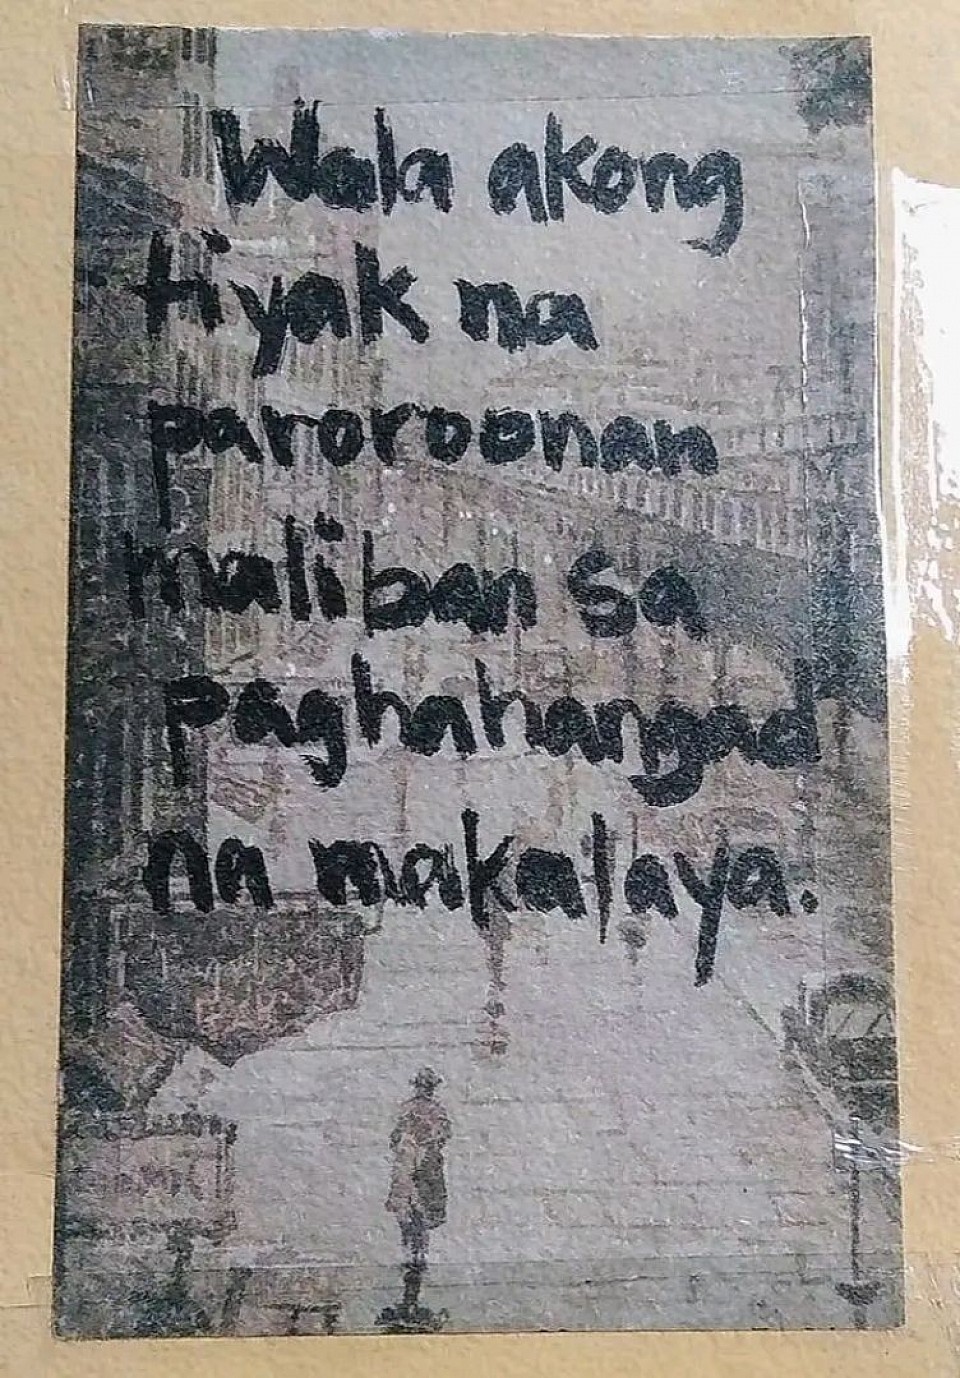 Wala akong
tiyak na
paroroonan
maliban sa
paghahangad
na makalaya.